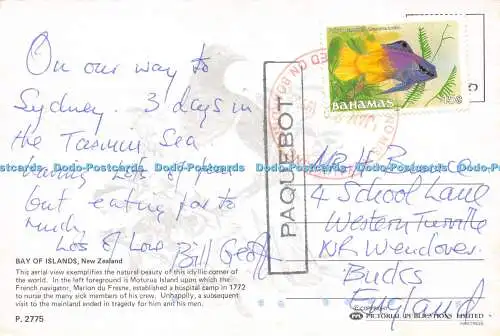 On our way to
Sydney. 3 days in
the Tasmin Sea
Having Lots of
but eating far to
much,
Lots of Love
Bill
BAY OF ISLANDS, New Zealand
This aerial view exemplifies the natural beauty of this idyllic corner of
the world. In the left foreground is Moturua Island upon which the
French navigator, Marion du Fresne, established a hospital camp in 1772
to nurse the many sick members of his crew. Unhappily, a subsequent
visit to the mainland ended in tragedy for him and his men.
P. 2775
PAQUEBOT
BAHAMAS 15c
Mr H.
4 School Lane
Western Turville
NR Wendover
Bucks
England
PICTORIAL PUBLICATIONS LIMITED
HASTINGS
Dodo-Postcards Dodo-Postcards Dodo-Postcards Dodo-Postcards Dodo-Postcards Dodo-Postcards